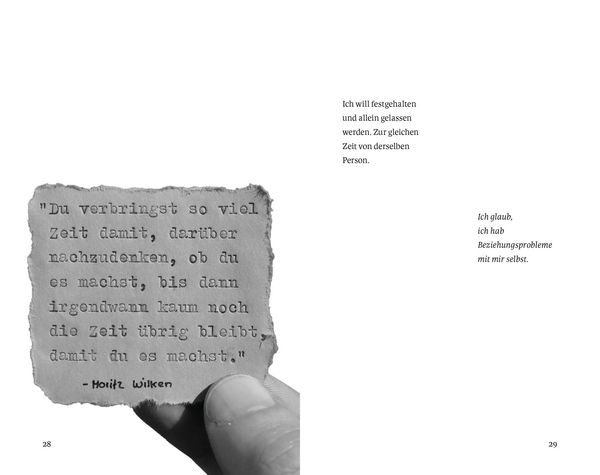 "Du verbringst so viel
Zeit damit, darüber
nachzudenken, ob du
es machst, bis dann
irgendwann kaum noch
die Zeit übrig bleibt,
damit du es machst."
- Moritz Wilken
28
Ich will festgehalten
und allein gelassen
werden. Zur gleichen
Zeit von derselben
Person.
Ich glaub,
ich hab
Beziehungsprobleme
mit mir selbst.
29